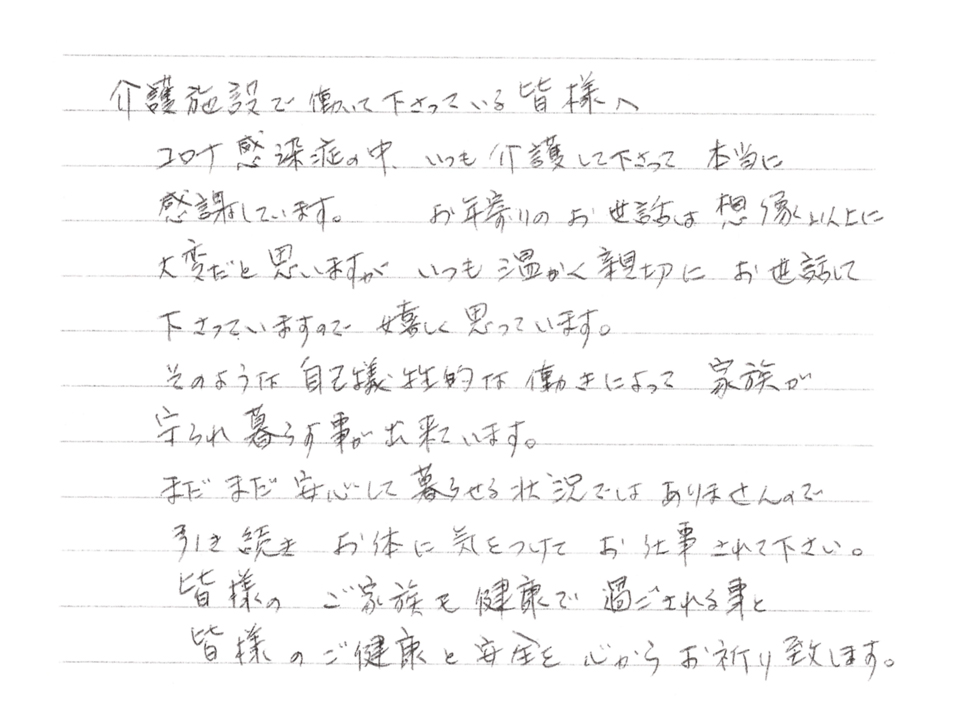 介護施設で働いて下さっている皆様へ
コロナ感染症の中、いつも介護して下さって 本当に
感謝しています。 お年寄りのお世話は想像以上に
大変だと思いますが いつも温かく親切に お世話して
下さっていますので 嬉しく思っています。
そのような自己犠牲的な働きによって 家族が
守られ暮らす事が出来ています。
まだまだ安心して暮らせる状況ではありませんので
引き続き お体に気をつけて お仕事されて下さい。
皆様の ご家族も健康で過ごされる事と
皆様のご健康と安全を心からお祈り致します。